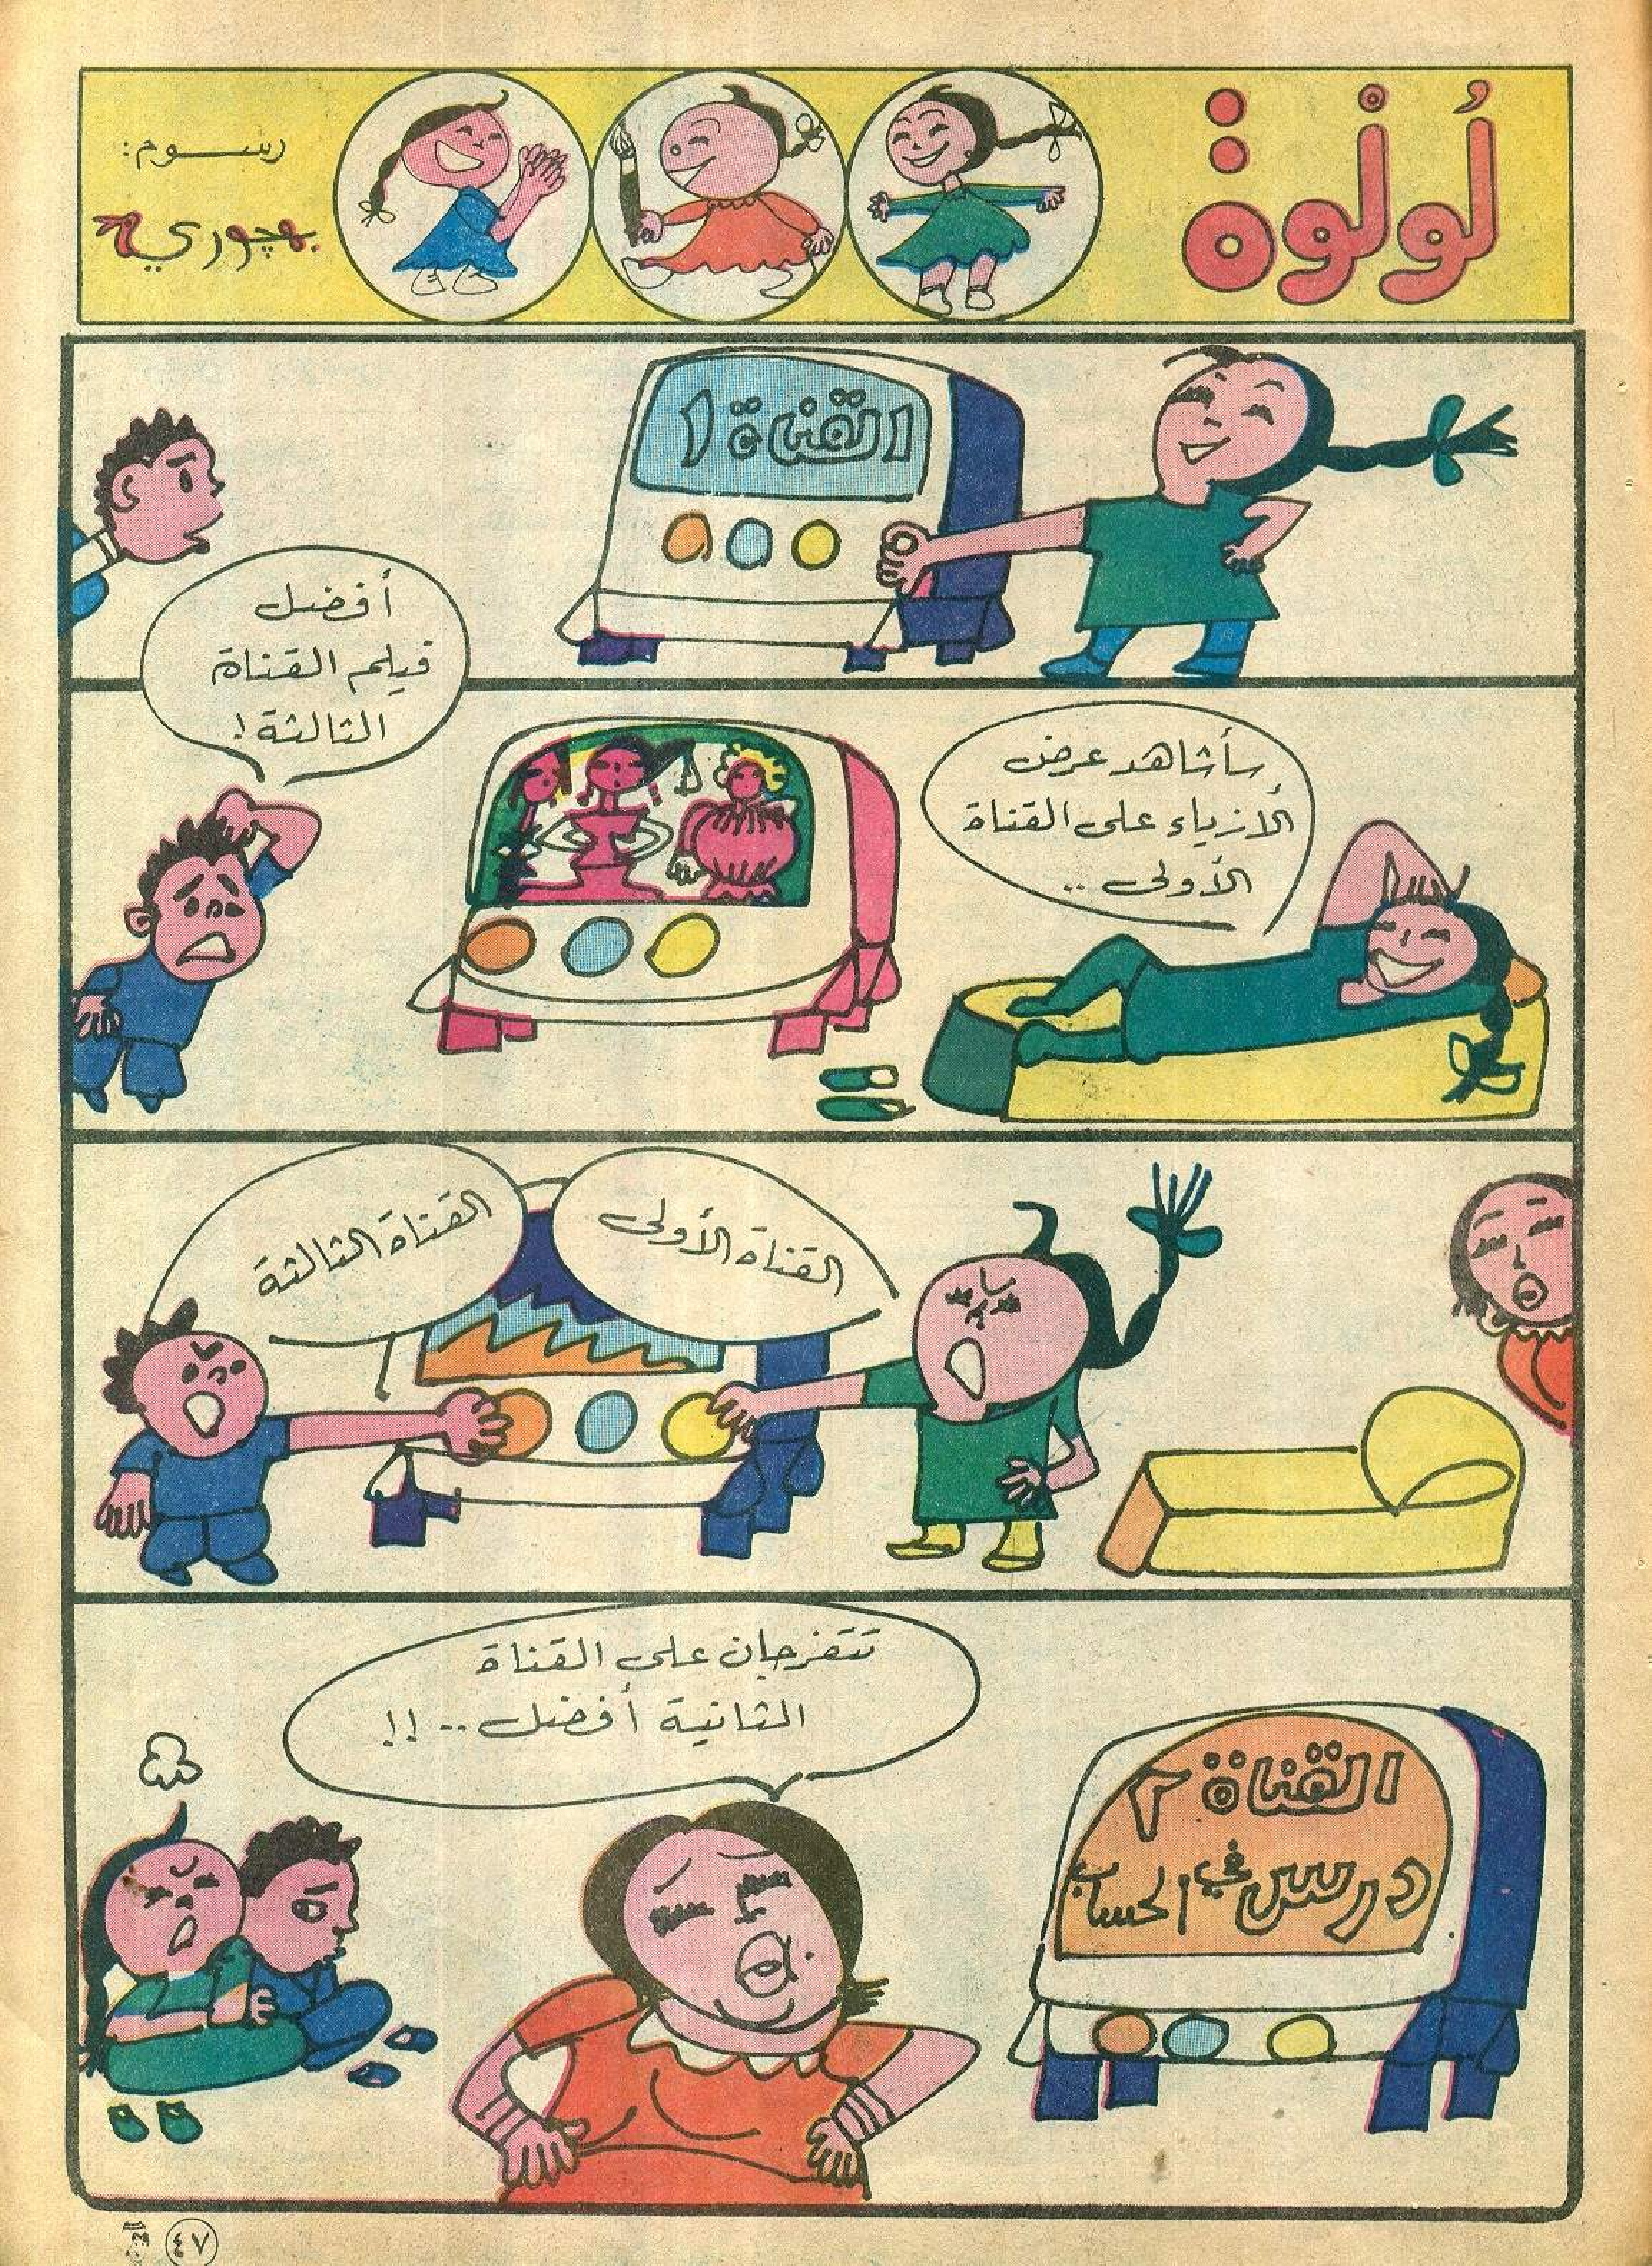 لُونُوة
رسوم:
بهچوري
القناة ١
أفضل
فيلم القناة
الثالثة!
سأشاهد عرض
الأزياء على القناة
الأولى ..
القناة الأولى
القناة الثالثة
تتفرجان على القناة
الثانية أفضل .. !!
القناة ٢
درس في الحساب
٤٧